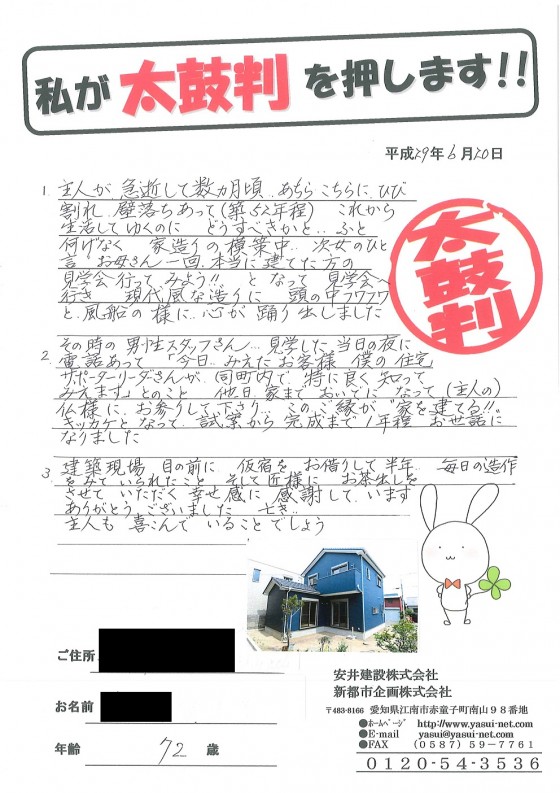 私が太鼓判を押します!!
平成29年6月20日
1. 主人が急逝して数カ月頃、あちらこちらに、ひび
割れ、壁落ちあって(築52年程) これから
生活してゆくのに どうすべきかと.. ふと
何げなく 家造りの模築中.. 次女のひと
言 お母さん一回.本当に建てた方の
見学会行ってみよう!! となって 見学会へ
行き 現代風な造りに 頭の中フワフワ
と.風船の様に.心が踊り出しました
太鼓判
2. その時の男性スタッフさん...見学した当日の夜に
電話あって「今日..みえたお客様 僕の住宅
サポーターリーダーさんが、(司町内で、特に良く知って
みえます」とのこと 他日家までおいでになって(主人の)
仏様に、お参りして下さり.. このご縁が"家を建てる!!"
キッカケとなって.試案から完成まで1年程 お世話に
なりました
3. 建築現場.目の前に 仮宿を お借りして半年.. 毎日の造作
をみていられたこと そして匠様に お茶出しを
させていただく幸せ感に 感謝しています
ありがとうございました
主人も喜こんでいることでしょう
ご住所
お名前
年齢 72 歳
安井建設株式会社
新都市企画株式会社
〒483-8166 愛知県江南市赤童子町南山98番地
●ﾎｰﾑﾍﾟｰｼﾞ http://www.yasui-net.com
●E-mail yasui@yasui-net.com
●FAX (0587)59-7761
0120-54-3536